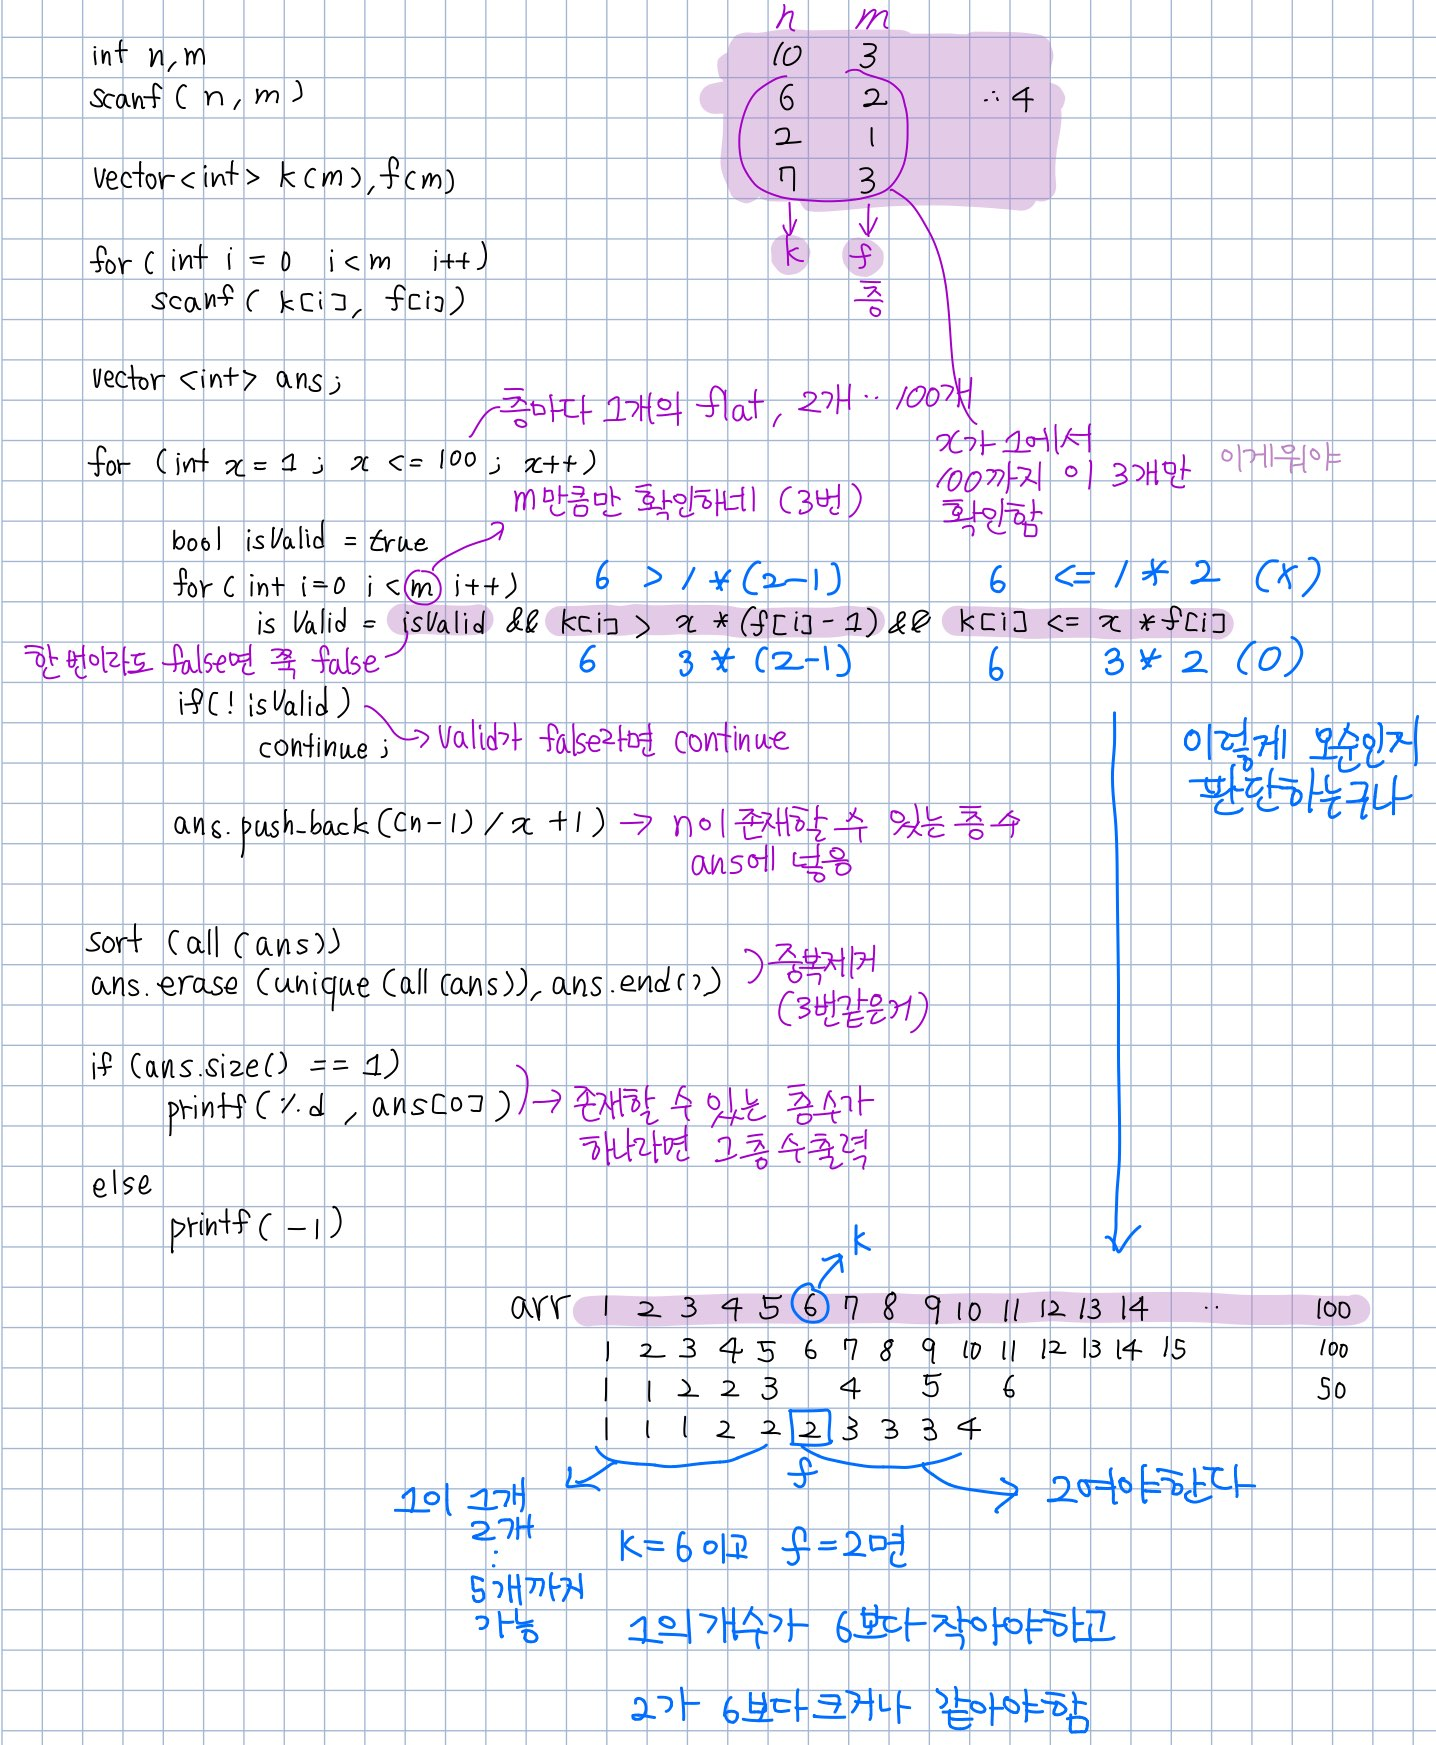 n m
int n, m
10 3
scanf ( n, m )
6 2 ∴ 4
2 1
vector<int> k(m), f(m)
7 3
k f
층
for ( int i = 0 i < m i++ )
scanf ( k[i], f[i] )
vector <int> ans;
층마다 1개의 flat, 2개 ·· 100개
for (int x = 1 ; x <= 100 ; x++ )
x가 1에서
100까지 이 3개만
확인함
이게뭐야
m만큼만 확인하네 (3번)
bool isValid = true
for ( int i=0 i < m i++ )
6 > 1 * (2-1) 6 <= 1 * 2 (X)
is Valid = isValid && k[i] > x * (f[i] - 1) && k[i] <= x * f[i]
6 3 * (2-1) 6 3 * 2 (O)
한 번이라도 false면 쭉 false
if( ! isValid )
continue ;
→ Valid가 false라면 continue
이렇게 모순인지
판단하는구나
ans.push_back ((n-1) / x + 1) → n이 존재할 수 있는 층 수
ans에 넣음
sort (all (ans))
ans.erase (unique (all (ans)), ans.end())
) 중복제거
(3번같은거)
if (ans.size() == 1)
printf ( %d , ans[0] )
→ 존재할 수 있는 층수가
하나라면 그 층 수 출력
else
printf ( -1 )
k
arr 1 2 3 4 5 6 7 8 9 10 11 12 13 14 ·· 100
1 2 3 4 5 6 7 8 9 10 11 12 13 14 15 100
1 1 2 2 3 4 5 6 50
1 1 1 2 2 2 3 3 3 4
f
1이 1개
2개
:
5개까지
가능
2여야한다
k = 6 이고 f = 2면
1의 개수가 6보다 작아야하고
2가 6보다 크거나 같아야함